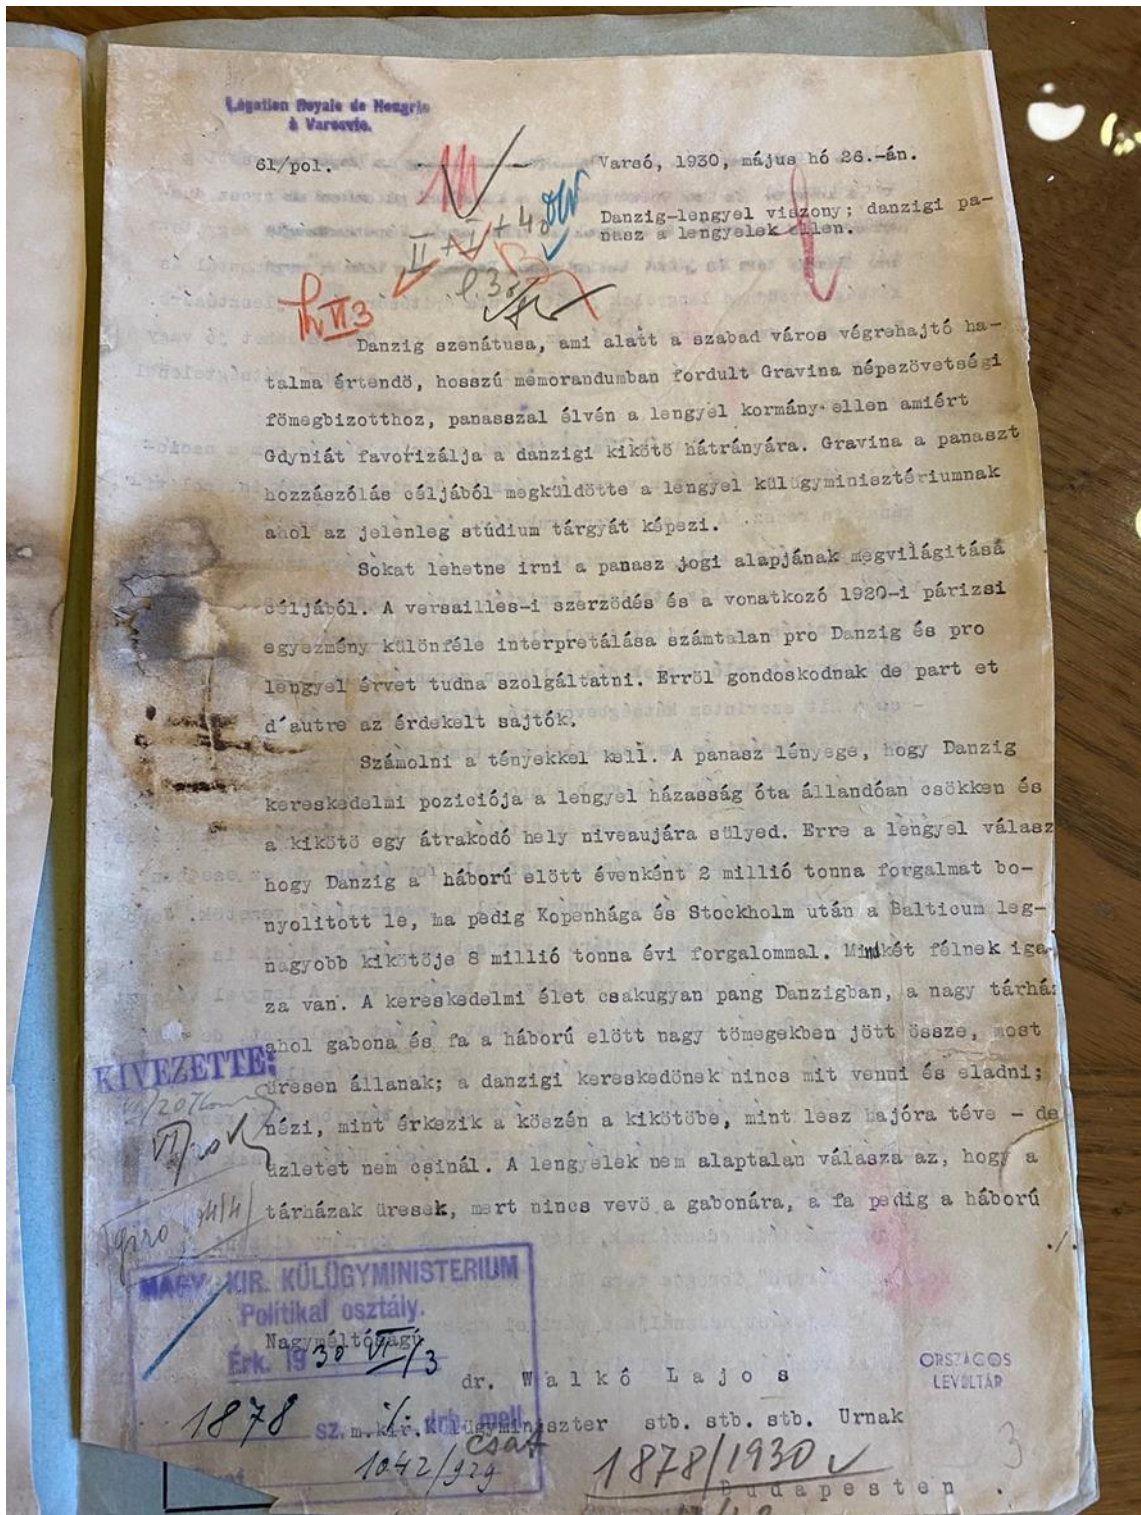 Légation Royale de Hongrie
à Varsovie.
61/pol.
Varsó, 1930, május hó 26.-án.
Danzig-lengyel viszony; danzigi pa-
nasz a lengyelek ellen.
II + I + 40
VI 3
Danzig szenátusa, ami alatt a szabad város végrehajtó ha-
talma értendö, hosszú memorandumban fordult Gravina népszövetségi
fömegbizotthoz, panasszal élvén a lengyel kormány ellen amiért
Gdyniát favorizálja a danzigi kikötö hátrányára. Gravina a panaszt
hozzászólás céljából megküldötte a lengyel külügyminisztériumnak
ahol az jelenleg stúdium tárgyát képezi.
Sokat lehetne irni a panasz jogi alapjának megvilágitása
céljából. A versailles-i szerzödés és a vonatkozó 1920-i párizsi
egyezmény különféle interpretálása számtalan pro Danzig és pro
lengyel érvet tudna szolgáltatni. Erröl gondoskodnak de part et
d´autre az érdekelt sajtók.
Számolni a tényekkel kell. A panasz lényege, hogy Danzig
kereskedelmi poziciója a lengyel házasság óta állandóan csökken és
a kikötö egy átrakodó hely niveaujára sülyed. Erre a lengyel válasz
hogy Danzig a háború elött évenként 2 millió tonna forgalmat bo-
nyolitott le, ma pedig Kopenhága és Stockholm után a Balticum leg-
nagyobb kikötöje 8 millió tonna évi forgalommal. Mindkét félnek iga-
za van. A kereskedelmi élet csakugyan pang Danzigban, a nagy tárhá
ahol gabona és fa a háború elött nagy tömegekben jött össze, most
üresen állanak; a danzigi kereskedönek nincs mit venni és eladni;
nézi, mint érkezik a köszén a kikötöbe, mint lesz hajóra téve - de
üzletet nem csinál. A lengyelek nem alaptalan válasza az, hogy a
tárházak üresek, mert nincs vevö a gabonára, a fa pedig a háború
./.
KIVEZETTE:
MAGY. KIR. KÜLÜGYMINISTERIUM
Politikai osztály.
Érk. 1930 VI/3
1878 sz. ./. drb. mell.
csat
1042/929
Nagyméltóságú
dr. Walkó Lajos
m.kir.külügyminiszter stb. stb. stb. Urnak
Budapesten.
ORSZÁGOS
LEVÉLTÁR
1878/1930
3